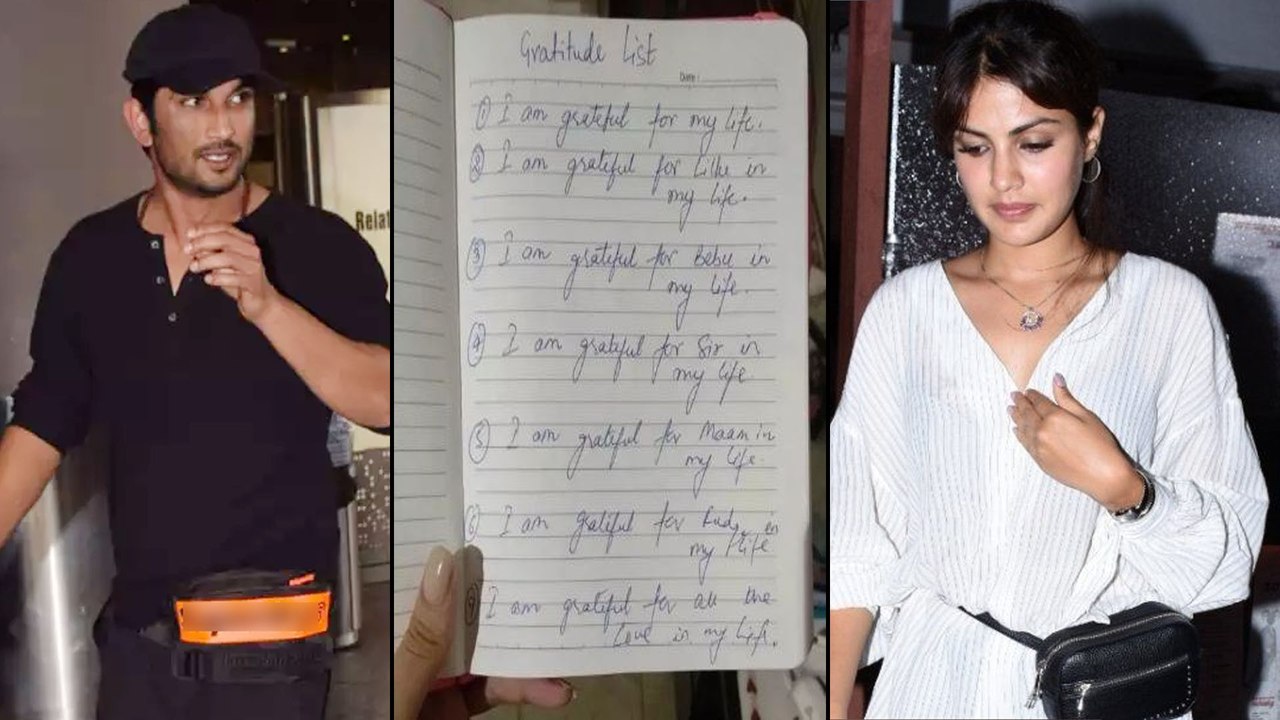 Relat
Gratitude List
Date:
① I am grateful for my life.
② I am grateful for Lillu in
my life.
③ I am grateful for Bebu in
my life.
④ I am grateful for Sir in
my life
⑤ I am grateful for Maam in
my life.
⑥ I am gratiful for in
my life
⑦ I am grateful for all the
love in my life.